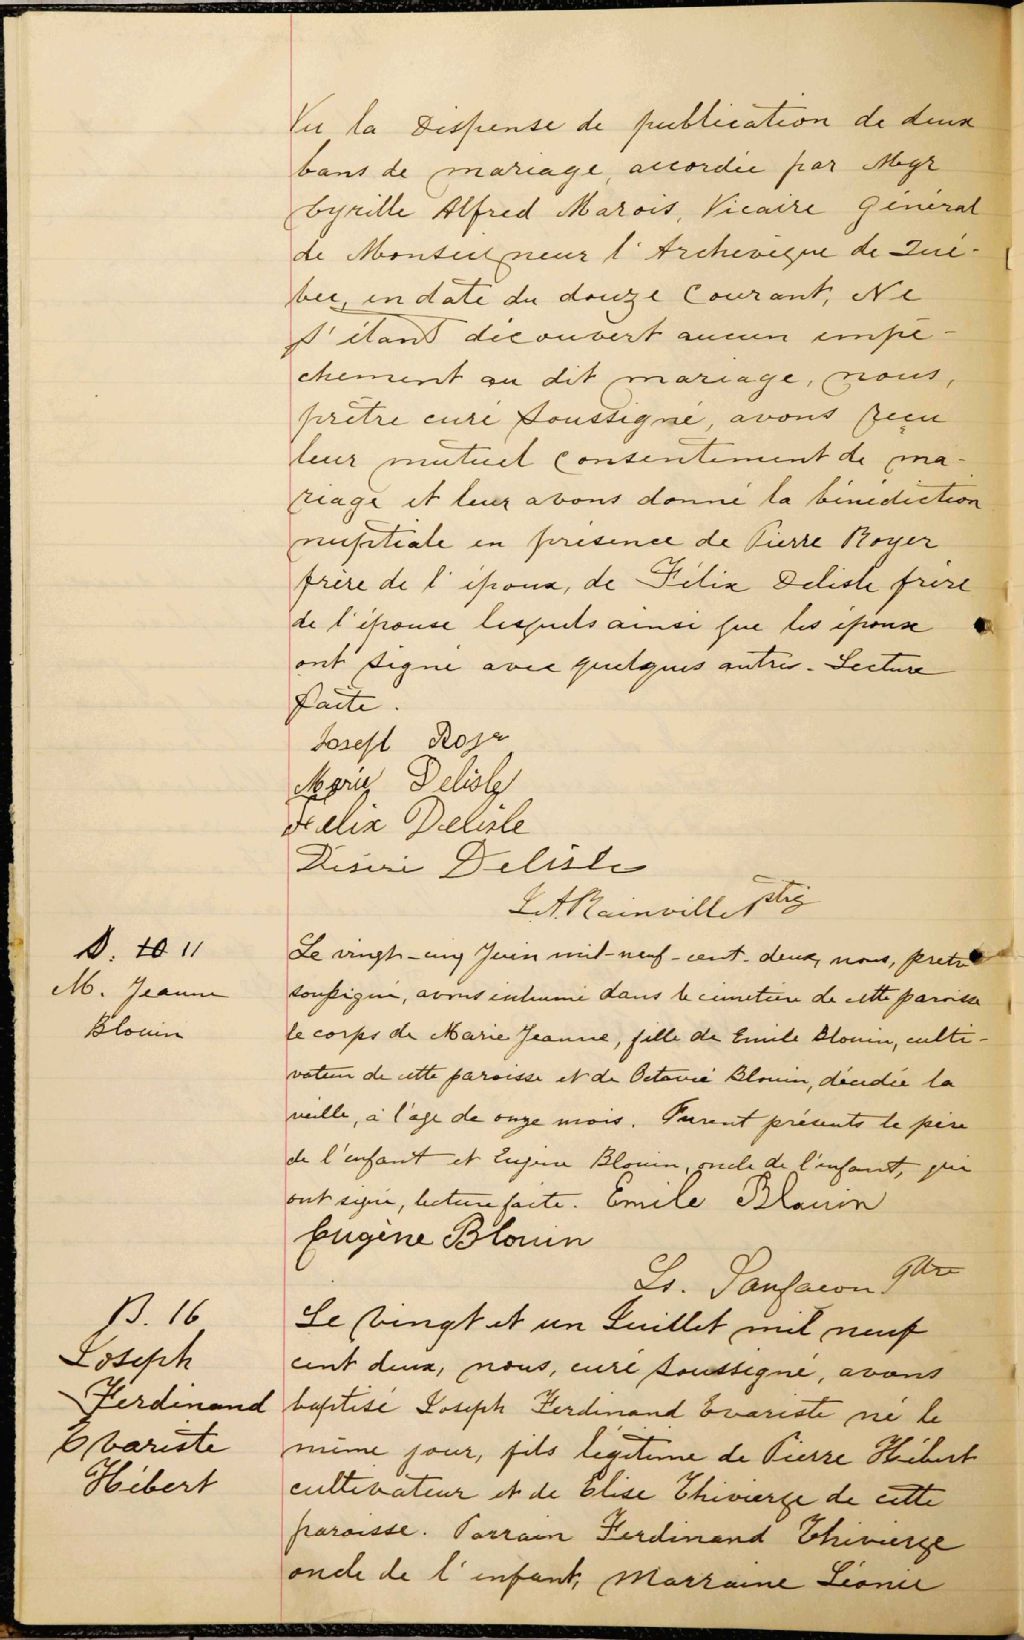 Vu la Dispense de publication de deux
bans de mariage, accordée par Mgr
Cyrille Alfred Marois, Vicaire Général
de Monseigneur l'Archevêque de Qué-
bec, en date du douze Courant, Ne
s'étant découvert aucun empê-
chement au dit mariage, nous,
prêtre curé soussigné, avons reçu
leur mutuel consentement de ma-
riage et leur avons donné la bénédiction
nuptiale en présence de Pierre Royer
frère de l'époux, de Félix Delisle frère
de l'épouse lesquels ainsi que les époux
ont signé avec quelques autres. Lecture
faite.
Joseph Royer
Marie Delisle
Felix Delisle
Désiré Delisle
J. A. Rainville ptre
S. 10 11
M. Jeanne
Blouin
Le vingt-cinq Juin mil-neuf-cent-deux, nous, prêtre
soussigné, avons inhumé dans le cimetière de cette paroisse
le corps de Marie Jeanne, fille de Emile Blouin, culti-
vateur de cette paroisse et de Octavie Blouin, décédée la
veille, à l'age de onze mois. Furent présents le père
de l'enfant et Eugène Blouin, oncle de l'enfant, qui
ont signé, lecture faite. Emile Blouin
Eugène Blouin
Ls. Sanfacon Ptre
B. 16
Joseph
Ferdinand
Evariste
Hébert
Le vingt et un Juillet mil neuf
cent deux, nous, curé soussigné, avons
baptisé Joseph Ferdinand Evariste né le
même jour, fils légitime de Pierre Hébert
cultivateur et de Elise Thivierge de cette
paroisse. Parrain Ferdinand Thivierge
oncle de l'enfant, Marraine Léonie